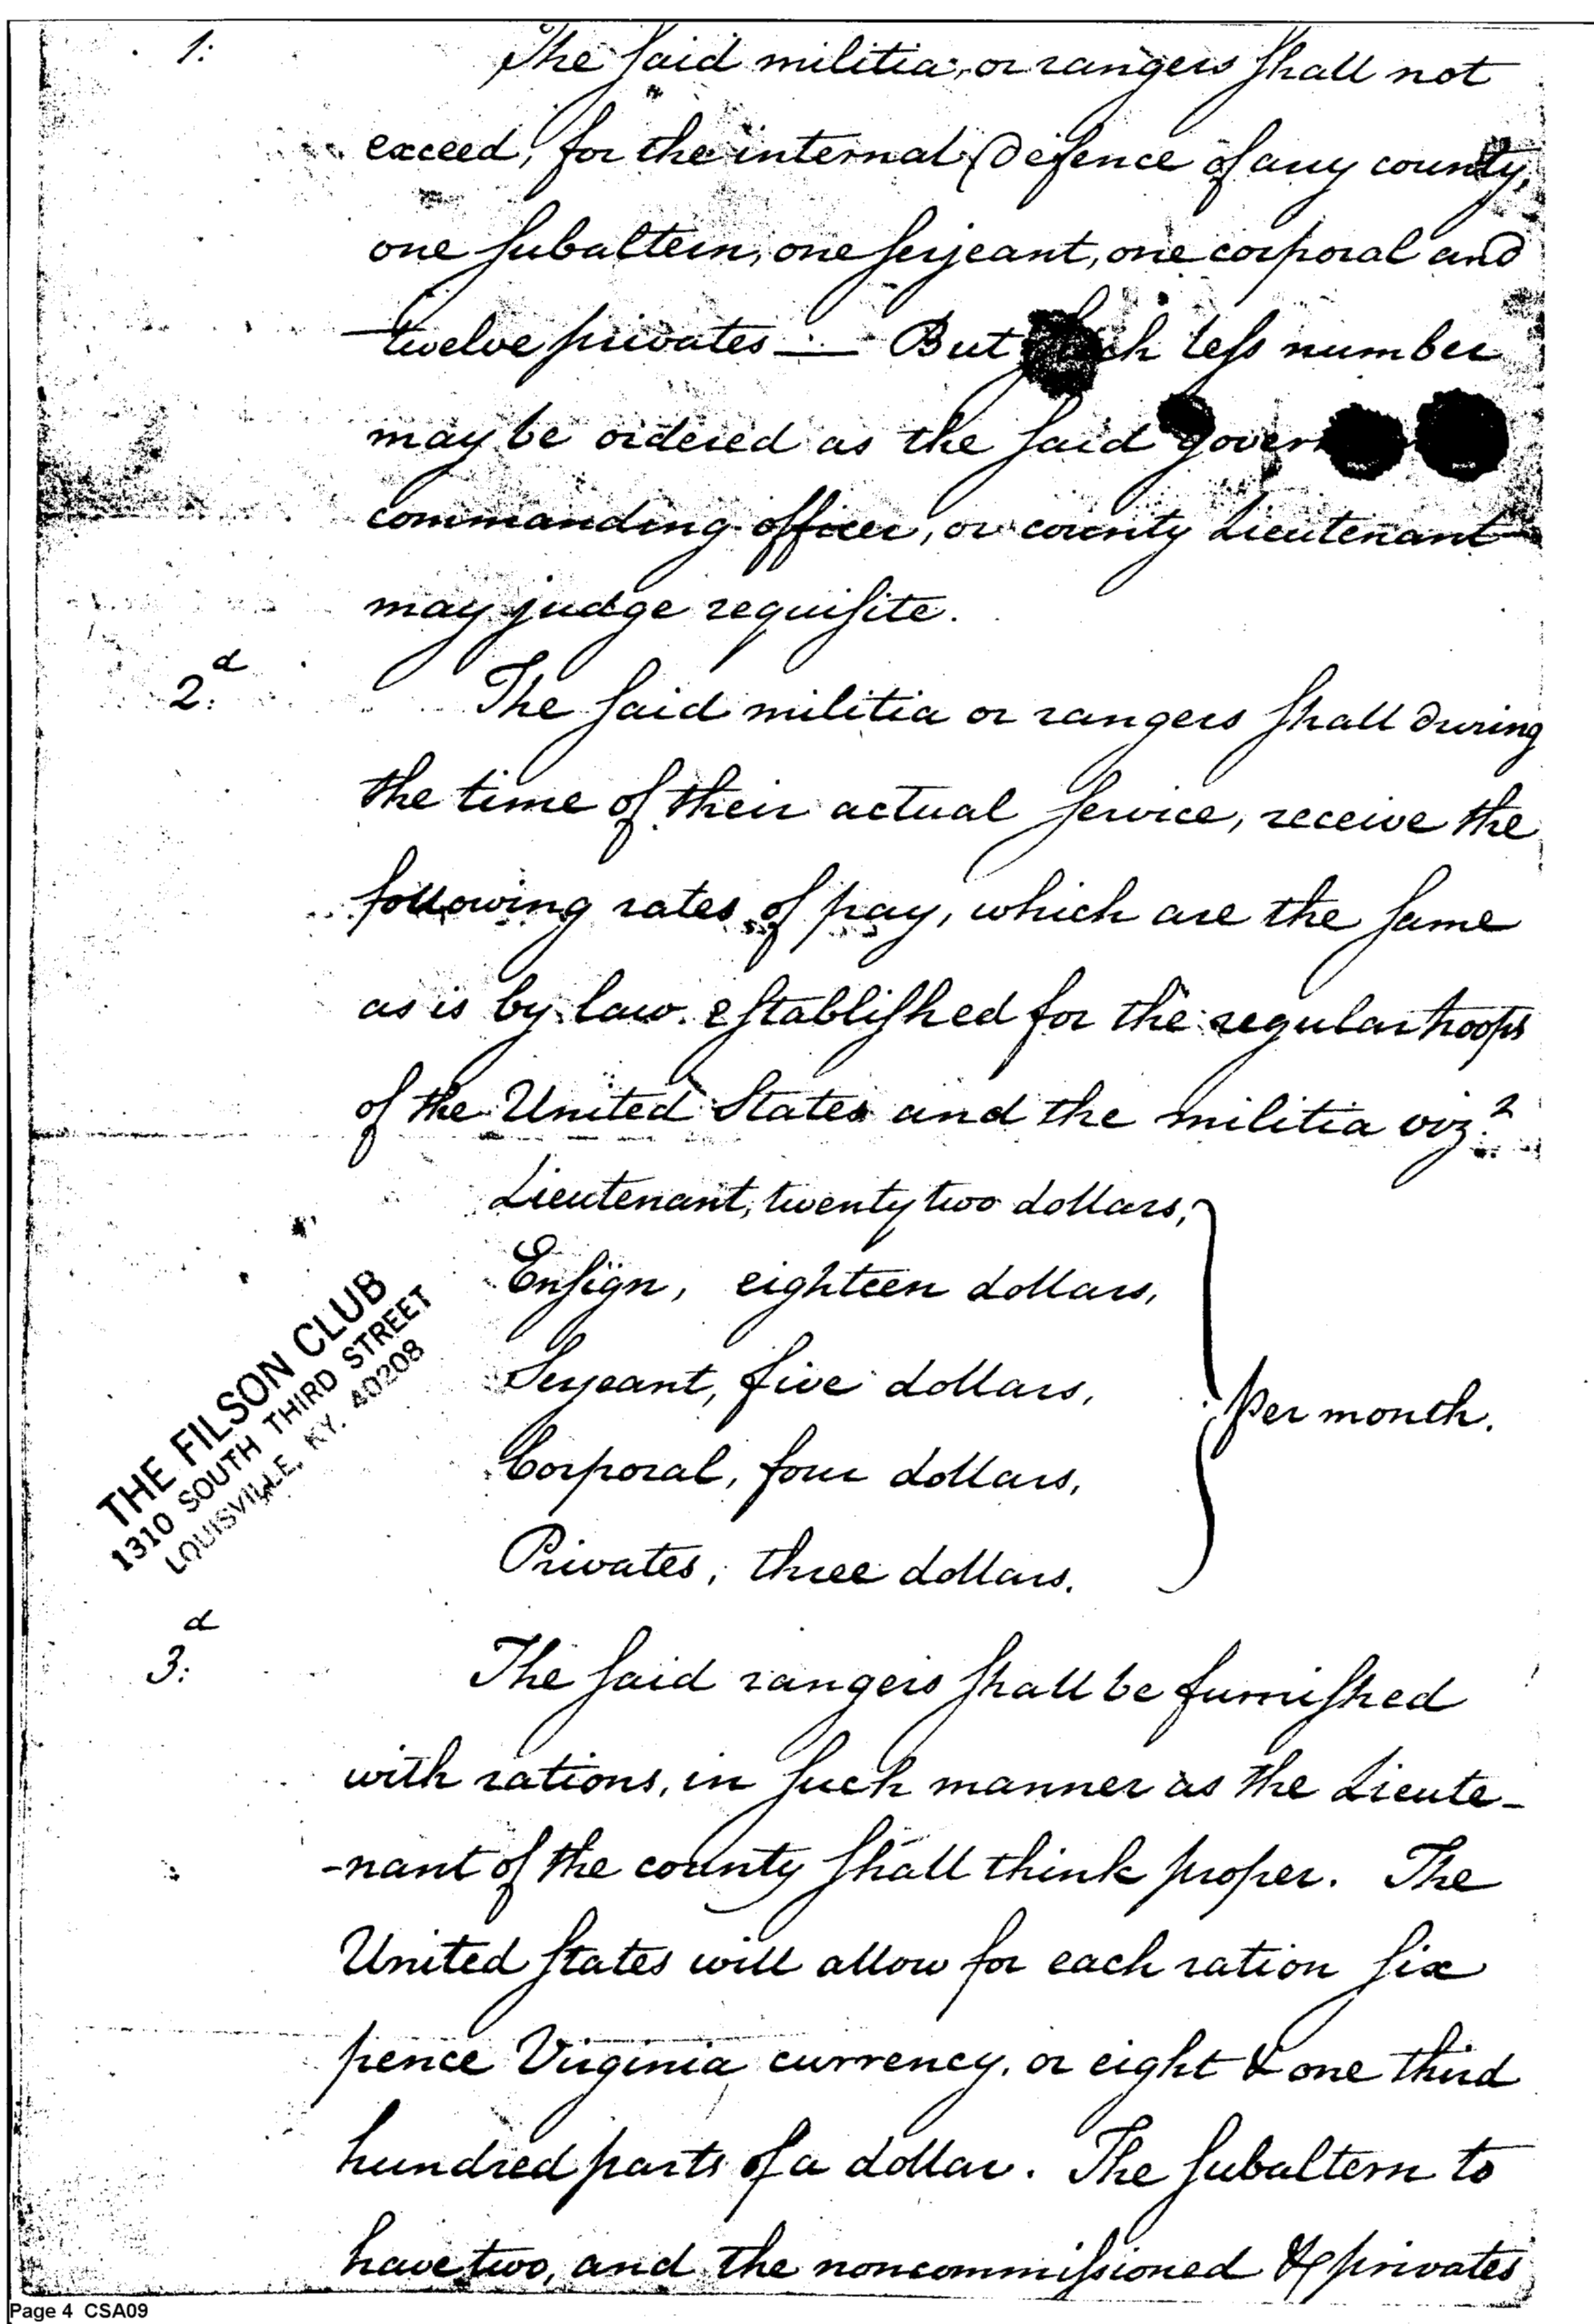 1: The said militia, or rangers shall not
exceed, for the internal Defence of any county,
one subaltern, one serjeant, one corporal and
twelve privates — But such less number
may be ordered as the said
commanding officer, or county Lieutenant
may judge requisite.
2.d The said militia or rangers shall during
the time of their actual service, receive the
following rates of pay, which are the same
as is by law established for the regular troops
of the United States and the militia viz.t
Lieutenant, twenty two dollars,
Ensign, eighteen dollars,
Serjeant, five dollars,
per month.
Corporal, four dollars,
Privates, three dollars.
THE FILSON CLUB
1310 SOUTH THIRD STREET
LOUISVILLE, KY. 40208
3.d The said rangers shall be furnished
with rations, in such manner as the Lieute-
-nant of the county shall think proper. The
United States will allow for each ration six
pence Virginia currency, or eight & one third
hundred parts of a dollar. The subaltern to
have two, and the noncommissioned & privates
Page 4 CSA09